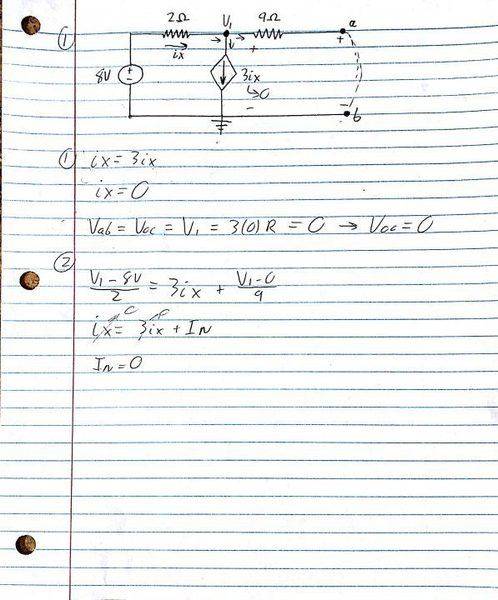 ①
2Ω V₁ 9Ω a
ix + +
8V + - 3ix
↳0
- - b
① ix = 3ix
ix = 0
Vab = Voc = V₁ = 3(0)R = 0 → Voc = 0
② (V₁ - 8V)/2 = 3ix + (V₁-0)/9
ix = 3ix + IN
IN = 0